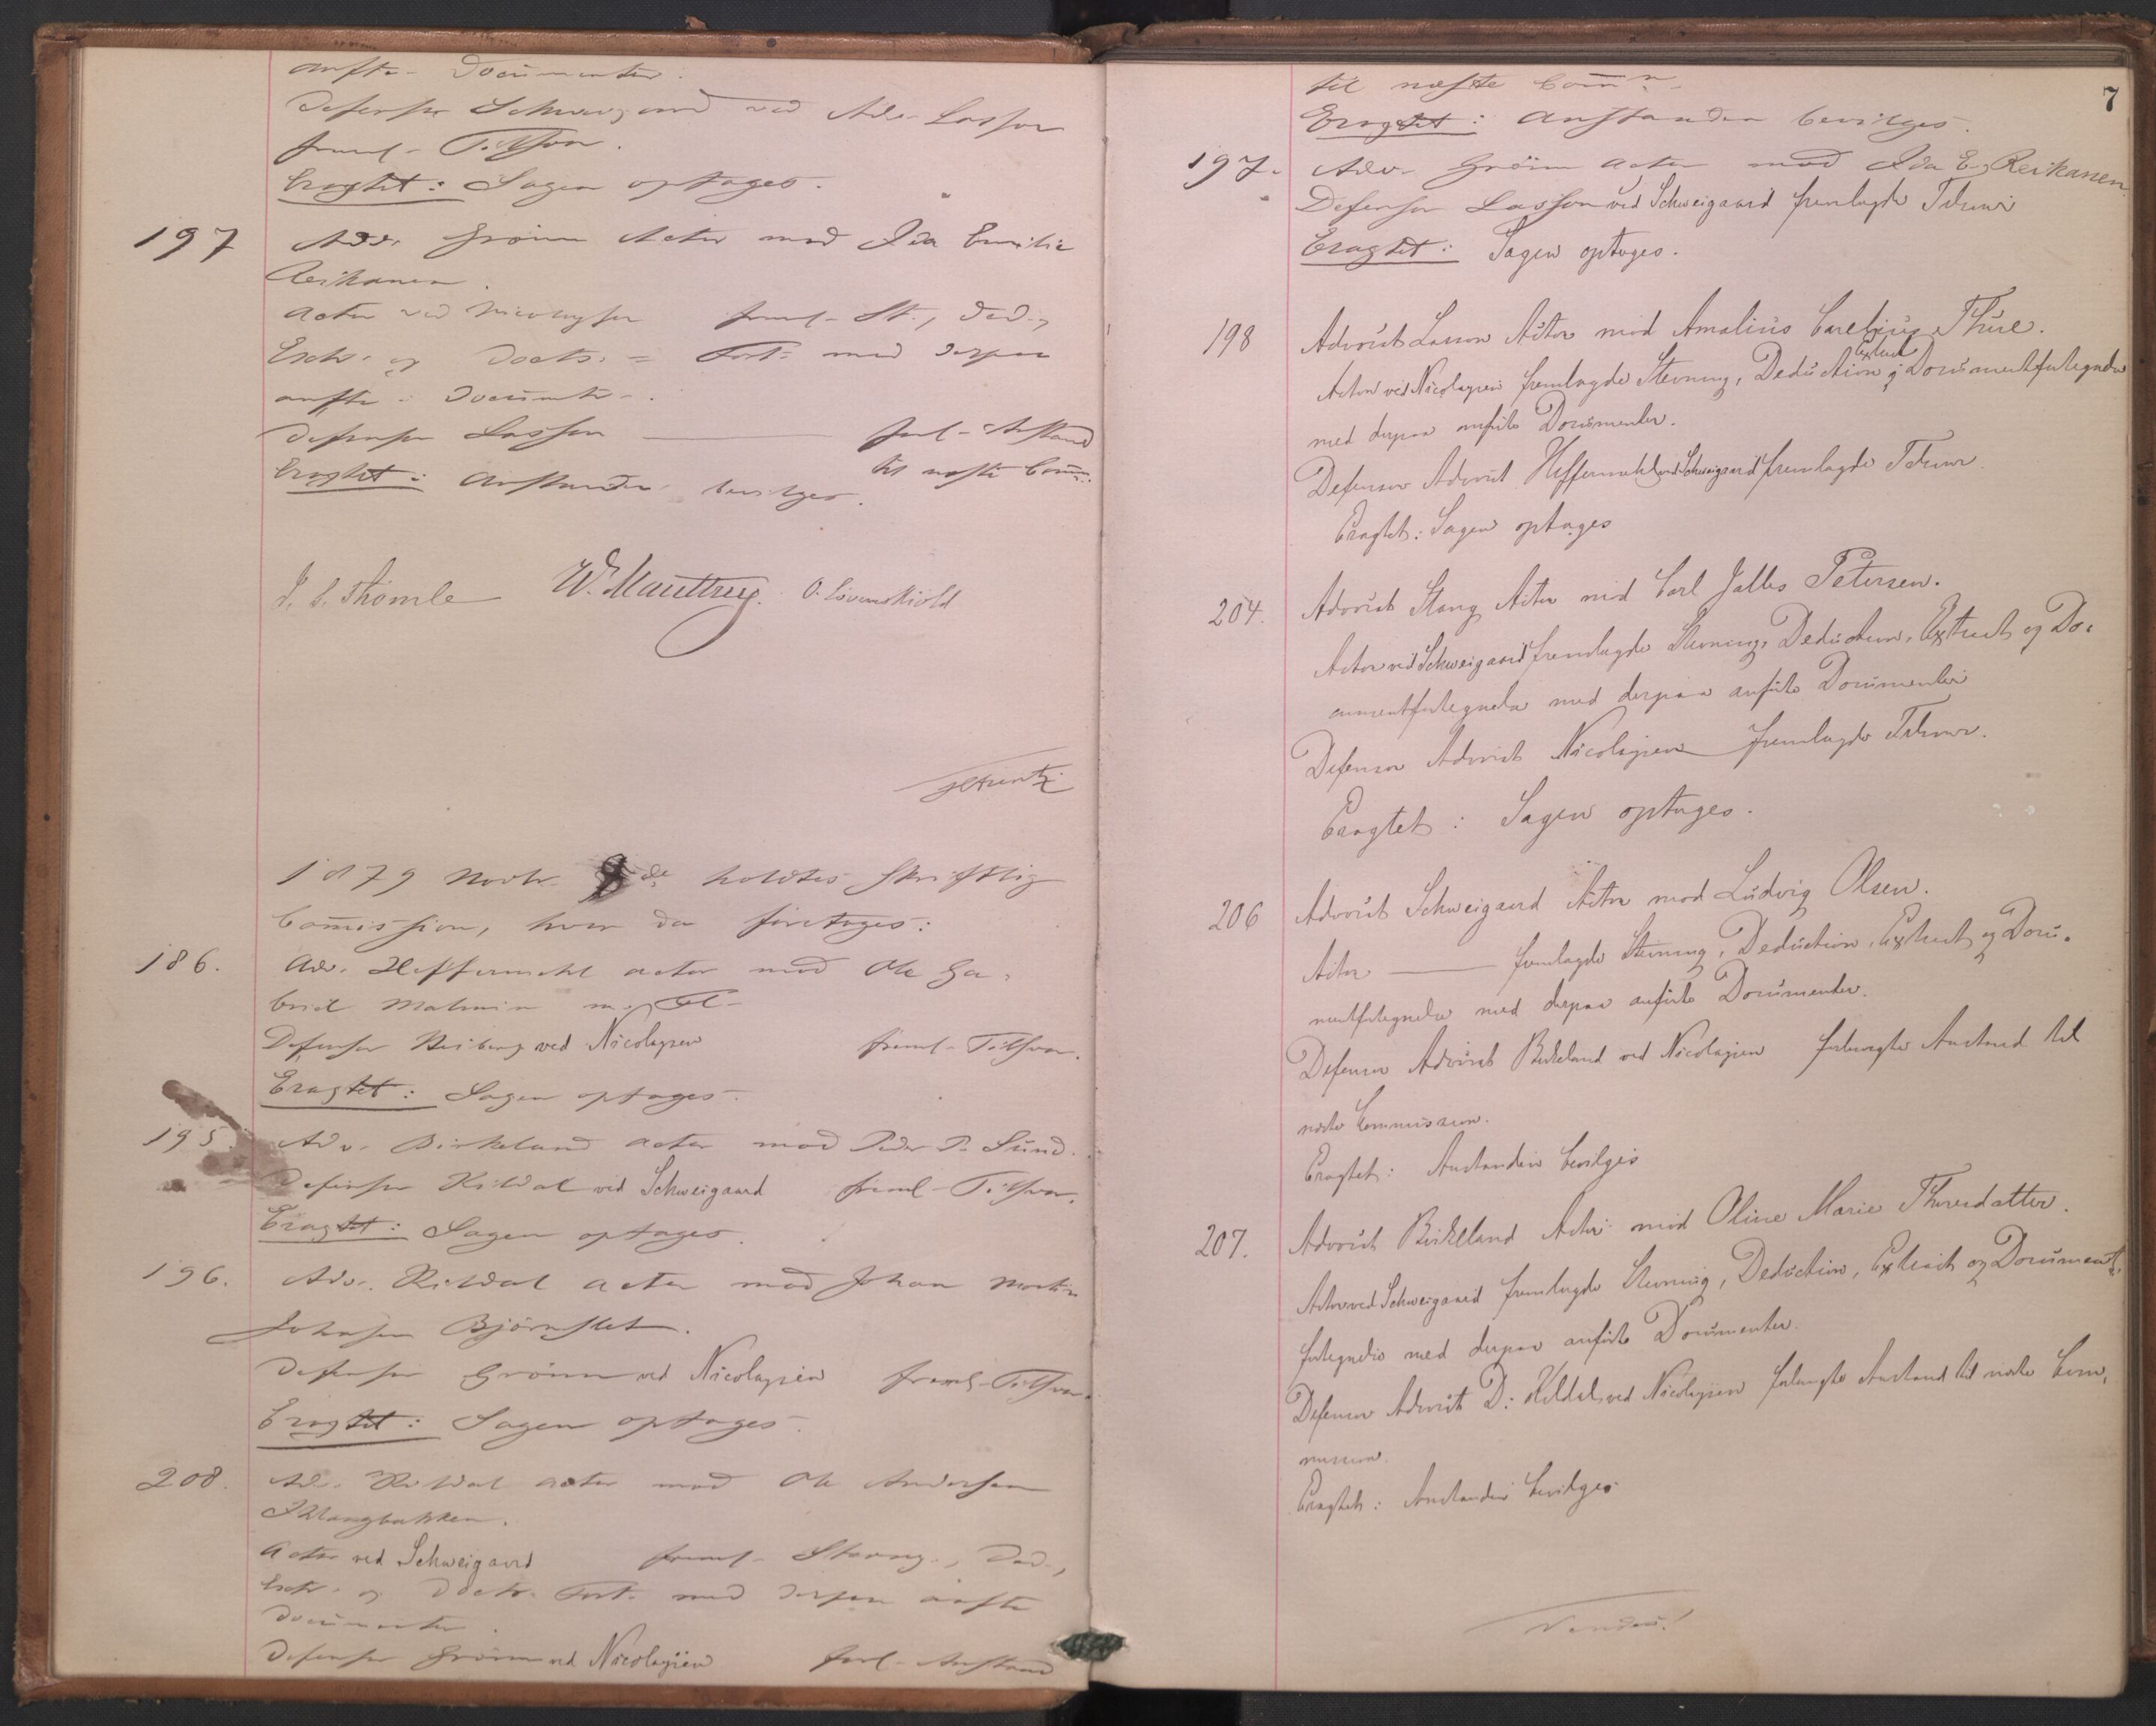 anfte- Documenter.
Defensor Schweigaard ved Adv. Lasson
freml- Tilsvar.
Eragtet: Sagen optages.
197 Adv. Grönn Actor mod Ida Emilie
Reikanen.
Actor ved Nicolaysen freml- St., Ded.,
Extr. og Docts. = Fort. med derpaa
anfte- Documtr-.
Defensor Lasson — forl- Anstand
til næste Comm:
Eragtet: Anstanden bevilges.
O. Løvenskiold
1879 Novbr. de holdtes skriftlig
Commission, hvor da foretoges:
186. Adv. Heffermehl actor mod Ole Ga-
briel Malmin m. Fl-
Defensor Heiberg ved Nicolaysen freml- Tilsvar.
Eragtet: Sagen optages.
195. Adv. Birkeland actor mod Peder P. Sund.
Defensor Kildal ved Schweigaard freml- Tilsvar.
Eragtet: Sagen optages.
196. Adv. Kildal actor mod Johan Martin
Johnsen Björnslet.
Defensor Grönn ved Nicolaysen freml- Tilsvar.
Eragtet: Sagen optages.
208. Adv. Kildal actor mod Ole Andersen
Actor ved Schweigaard freml- Stevng., Ded.,
Extr. og Docts. Fort. med derpaa anfte
Documenter.
Defensor Grönn ved Nicolaysen forl- Anstand
7
til næste Comm.n
Eragtet: Anstanden bevilges.
197. Adv. Grönn actor mod Ida E. Reikanen.
Defensor Lasson ved Schweigaard fremlagde Tilsvar
Eragtet: Sagen optages.
198 Advocat Lasson Actor mod Amalius Thüe.
Extract
Actor ved Nicolaysen fremlagde Stevning, Deduction og Documentfortegnelse
med derpaa anførte Documenter.
Defensor Advocat Heffermehl ved Schweigaard fremlagde Tilsvar.
Eragtet: Sagen optages
204. Advocat Stang Actor mod Carl Petersen.
Actor ved Schweigaard fremlagde Stevning, Deduction, Extract og Do-
cumentfortegnelse med derpaa anførte Documenter
Defensor Advocat Nicolaysen fremlagde Tilsvar.
Eragtet: Sagen optages.
206 Advocat Schweigaard Actor mod Ludvig Olsen.
Actor — fremlagde Stevning, Deduction, Extract og Docu-
mentfortegnelse med derpaa anførte Documenter.
Defensor Advocat Birkeland ved Nicolaysen forlangte Anstand til
næste Commission.
Eragtet: Anstanden bevilges
207. Advocat Birkeland Actor mod Oline Marie Thoresdatter.
Actor ved Schweigaard fremlagde Stevning, Deduction, Extract og Document-
fortegnelse med derpaa anførte Documenter.
Defensor Advocat D: Kildal ved Nicolaysen forlangte Anstand til næste Com-
mission.
Eragtet: Anstanden bevilges
Vendes!